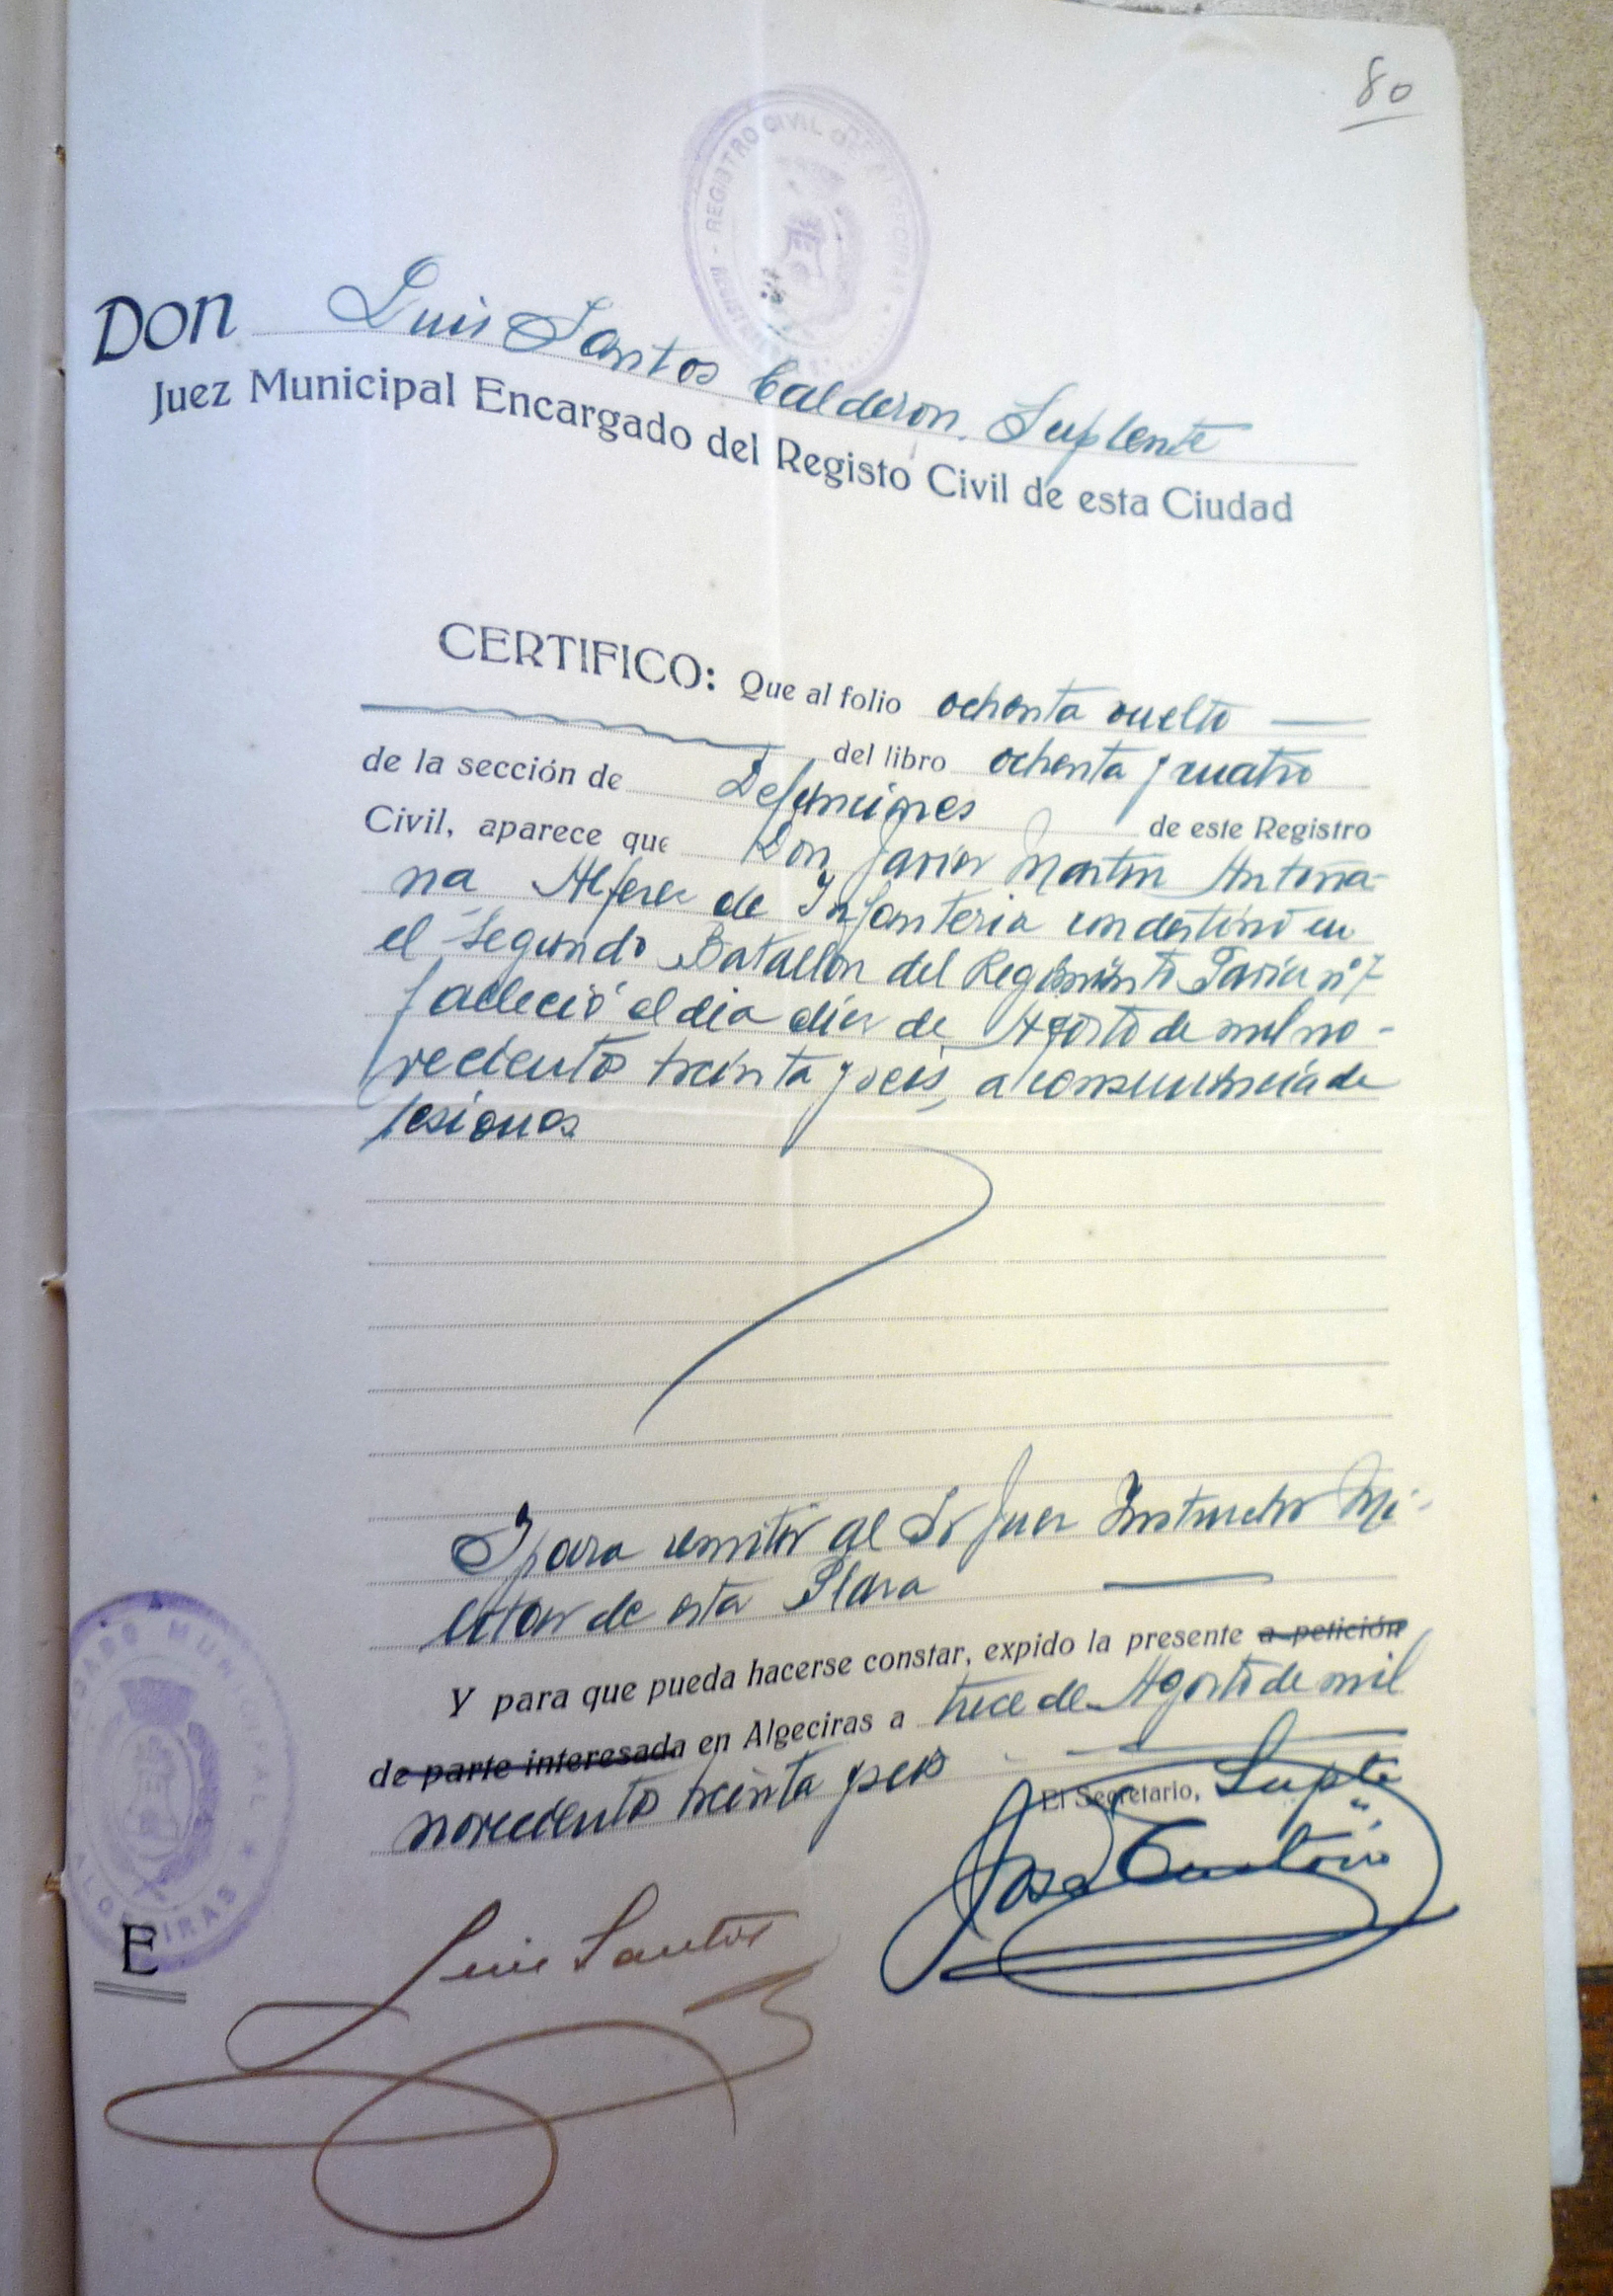 80
REGISTRO CIVIL DE ALGECIRAS
DON Luis Santos Calderon. Suplente
Juez Municipal Encargado del Registo Civil de esta Ciudad
CERTIFICO: Que al folio ochenta vuelto
del libro ochenta y cuatro
de la sección de Defunciones de este Registro
Civil, aparece que Don Javier Martin Antoña-
na Alferez de Infanteria con destino en
el Segundo Batallon del Regimiento Pavia nº 7
falleció el dia diez de Agosto de mil no-
vecientos treinta y seis, a consecuencia de
lesiones
Y para remitir al Sr Juez Instructor Mi-
litar de esta Plaza
Y para que pueda hacerse constar, expido la presente a petición
de parte interesada en Algeciras a trece de Agosto de mil
novecientos treinta y seis
El Secretario, Suplte
Luis Santos
JUZGADO MUNICIPAL
ALGECIRAS
E